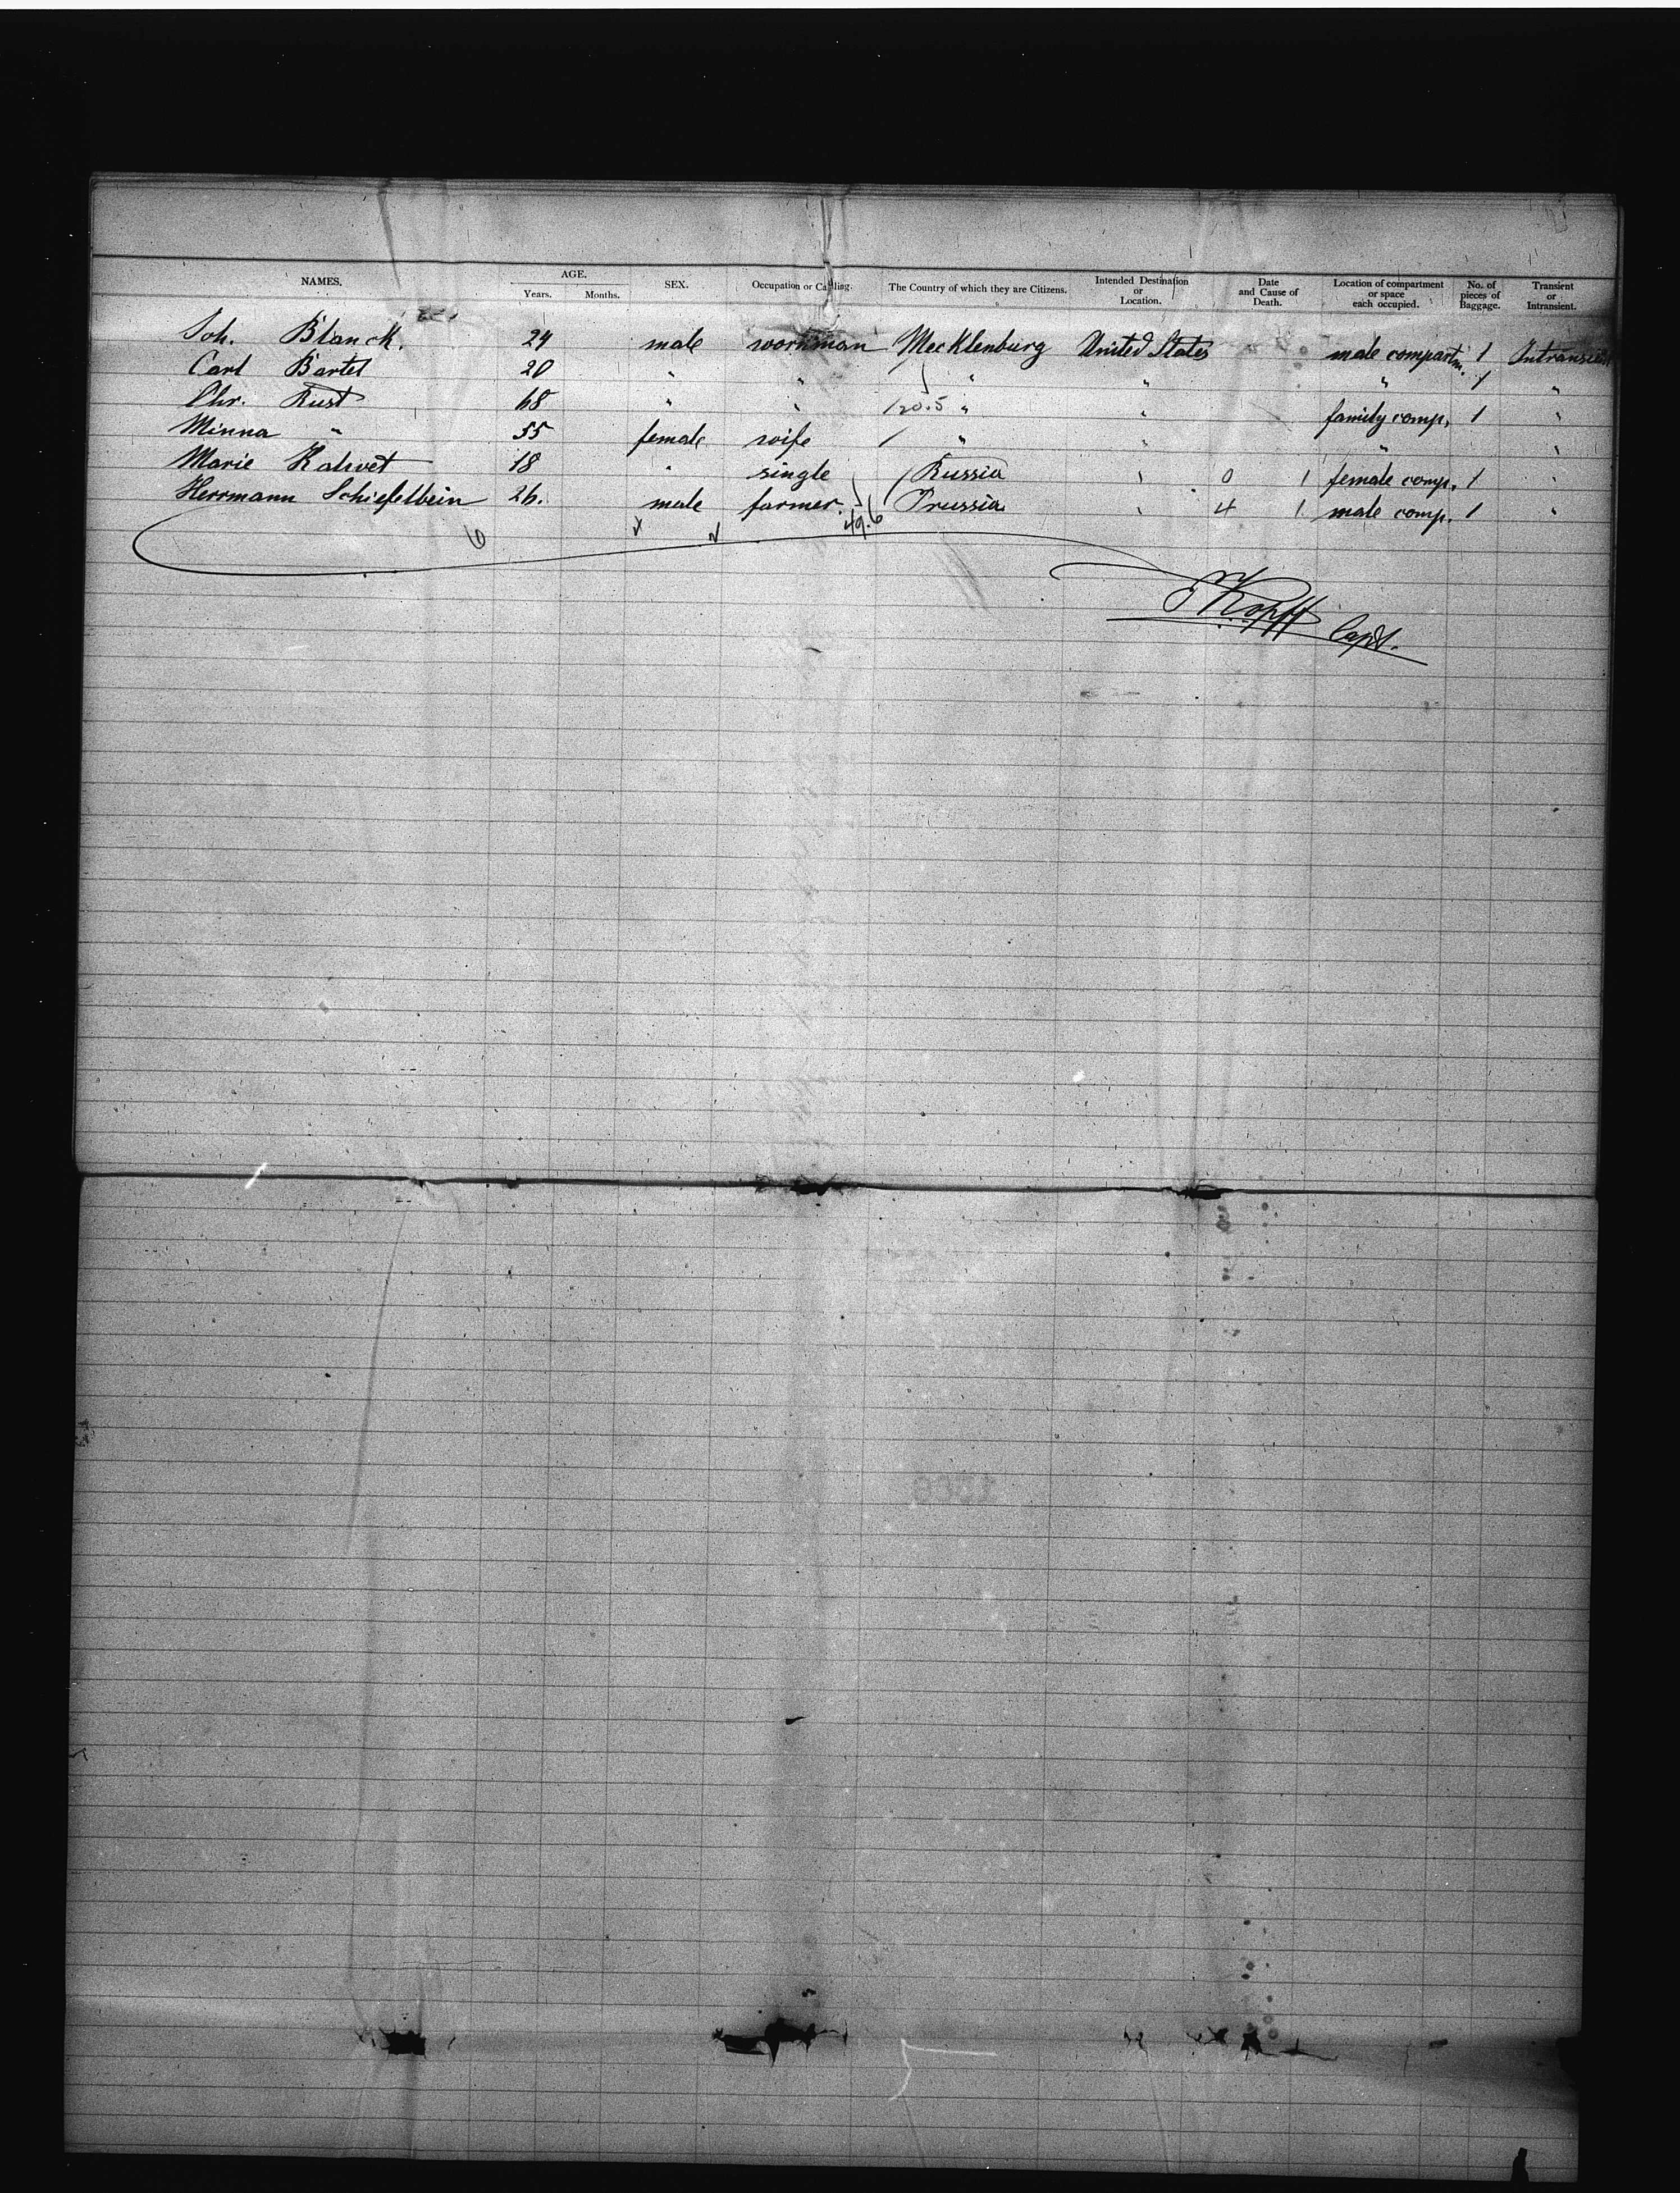 NAMES. AGE. SEX. Occupation or Calling. The Country of which they are Citizens. Intended Destination or Location. Date and Cause of Death. Location of compartment or space each occupied. No. of pieces of Baggage. Transient or Intransient.
Years. Months.
Joh. Blanck. 24 male workman Mecklenburg United States male compartm. 1 Intransient
Carl Bartel 20 " " " " " 1 "
Chr. Rust 68 " " 120.5 " " family comp. 1 "
Minna " 55 female wife " " " "
Marie 18 " single Russia " 0 1 female comp. 1 "
Herrmann Schiefelbein 26. male farmer. Prussia " 4 1 male comp. 1 "
49.6
Kopff Capt.